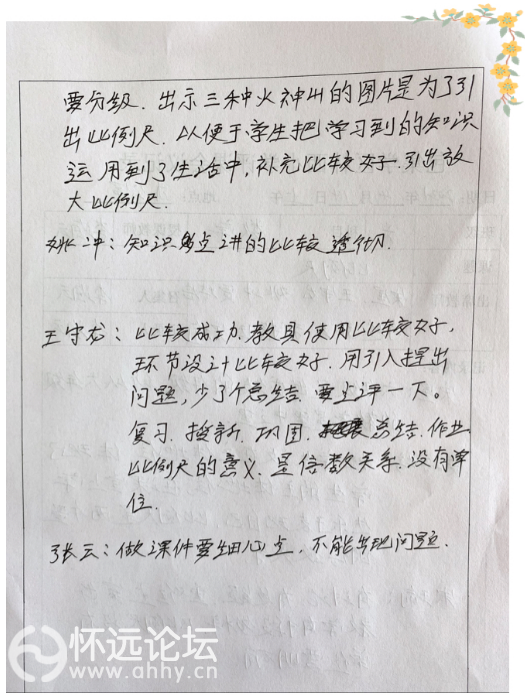 要分级. 出示三种火神山的图片是为了引
出比例尺. 以便于学生把学习到的知识
运用到了生活中, 补充比较好. 引出放
大比例尺.
姚冲: 知识点讲的比较透彻.
王守龙: 比较成功. 教具使用比较好,
环节设计比较好. 用引入提出
问题, 少了个总结. 要点评一下。
复习. 授新. 巩固. 总结. 作业
比例尺的意义. 是倍数关系. 没有单
位.
张云: 做课件要细心点. 不能出现问题.
怀远论坛
www.ahhy.cn